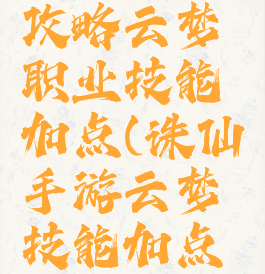 攻略云梦
职业技能
加点(诛仙
手游云梦
技能加点